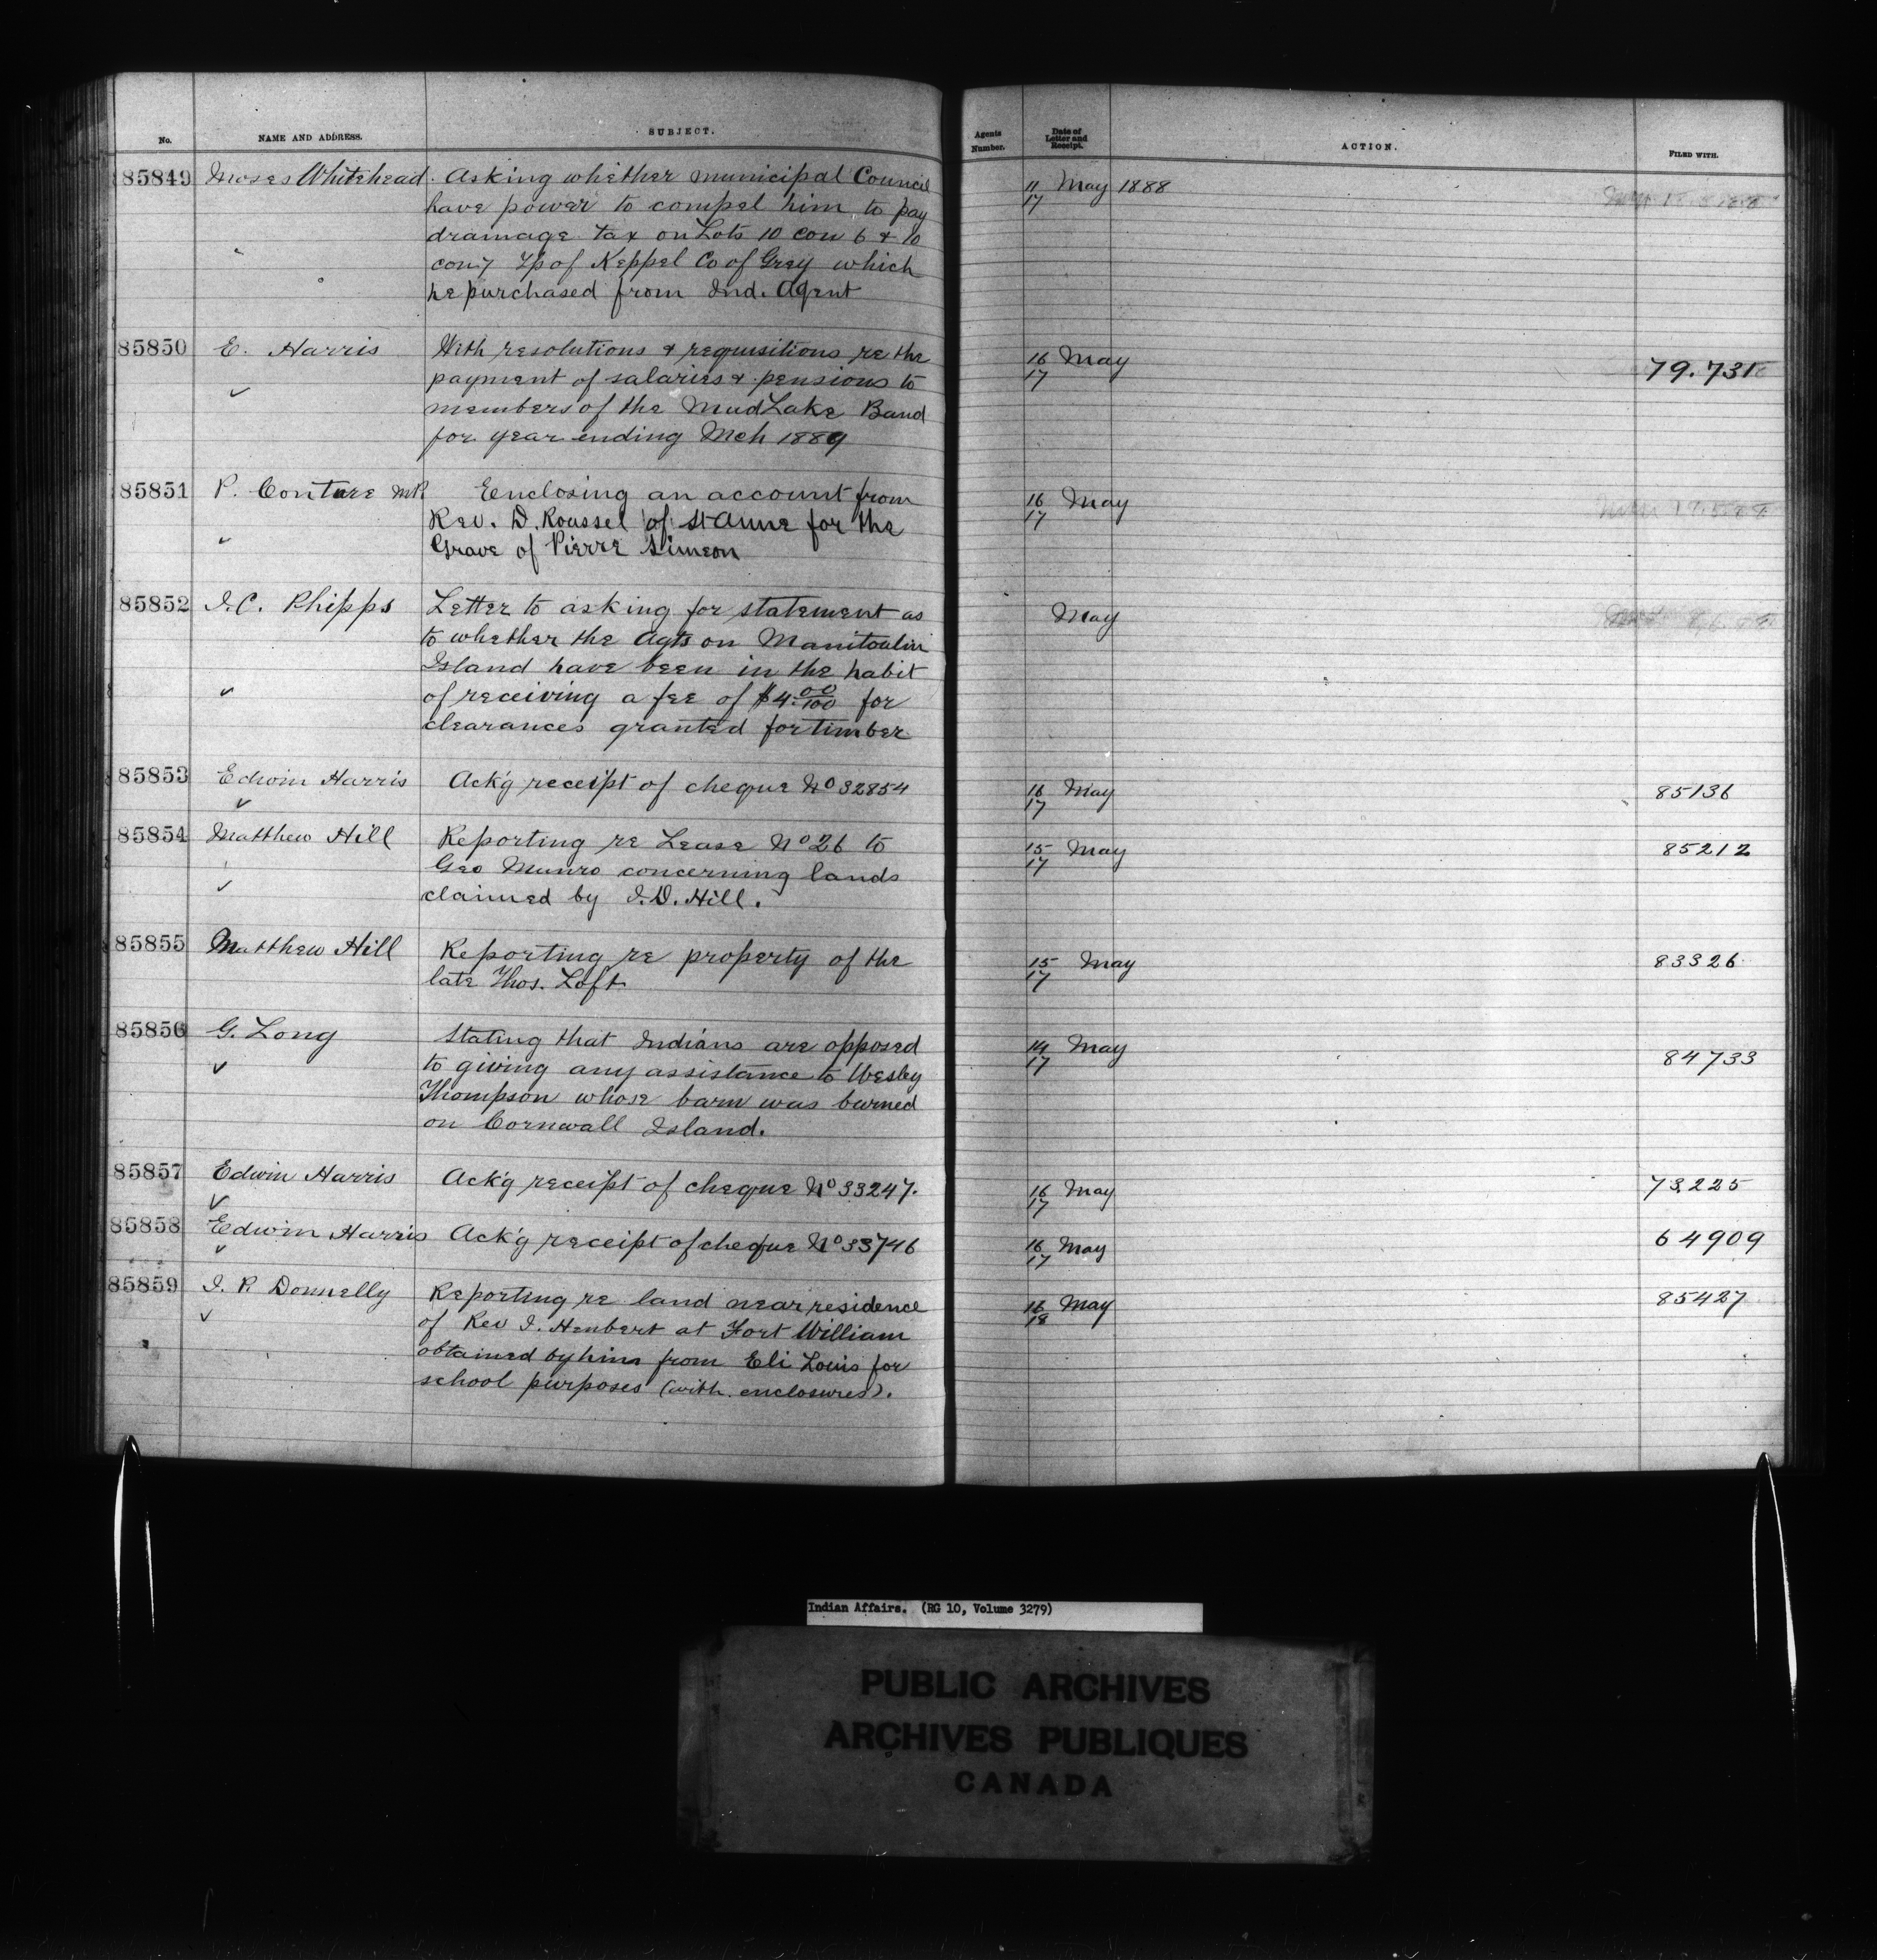 No. NAME AND ADDRESS. SUBJECT. Agents Number. Date of Letter and Receipt. ACTION. FILED WITH.
85849 Moses Whitehead. Asking whether municipal Council 11/17 May 1888
have power to compel him to pay
drainage tax on Lots 10 con 6 & 10
con 7 Tp of Keppel Co of Grey which
he purchased from Ind. Agent
85850 E. Harris With resolutions & requisitions re the 16/17 May 79.731
payment of salaries & pensions to
members of the Mud Lake Band
for year ending Mch 1889
85851 P. Couture MP Enclosing an account from 16/17 May
Rev. D. Roussel of St Anne for the
Grave of Pierre Simeon
85852 J.C. Phipps Letter to asking for statement as May
to whether the Agts on Manitoulin
Island have been in the habit
of receiving a fee of $4.00/100 for
clearances granted for timber
85853 Edwin Harris Ack'g receipt of cheque No 32854 16/17 May 85136
85854 Matthew Hill Reporting re Lease No 26 to 15/17 May 85212
Geo Munro concerning lands
claimed by J.D. Hill.
85855 Matthew Hill Reporting re property of the 15/17 May 83326
late Thos. Loft
85856 G. Long Stating that Indians are opposed 14/17 May 84733
to giving any assistance to Wesley
Thompson whose barn was burned
on Cornwall Island.
85857 Edwin Harris Ack'g receipt of cheque No 33247. 16/17 May 73225
85858 Edwin Harris Ack'g receipt of cheque No 33746 16/17 May 64909
85859 J. P. Donnelly Reporting re land near residence 16/18 May 85427
of Rev J. Henbert at Fort William
obtained by him from Eli Louis for
school purposes (with enclosures).
Indian Affairs. (RG 10, Volume 3279)
PUBLIC ARCHIVES
ARCHIVES PUBLIQUES
CANADA